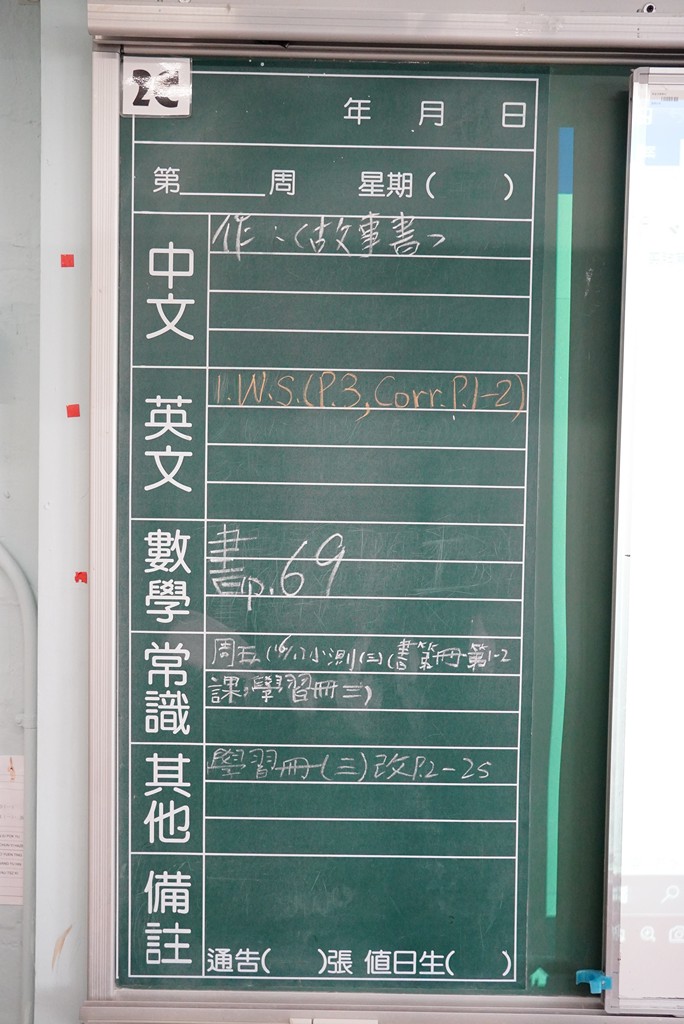 2C
年 月 日
第______周 星期( )
中文
作：〈故事書〉
英文
1.W.S.(P.3,Corr.P.1-2)
數學
書p.69
常識
周五(16/1)小測(三)(書第三冊第1-2
課,學習冊三)
其他
學習冊(三)改P.2-25
備註
通告( )張 值日生( )